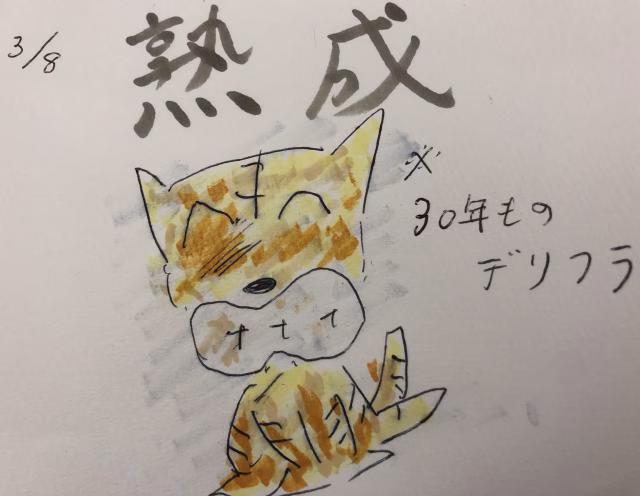 3/8
熟成
※
30年もの
デリフラ